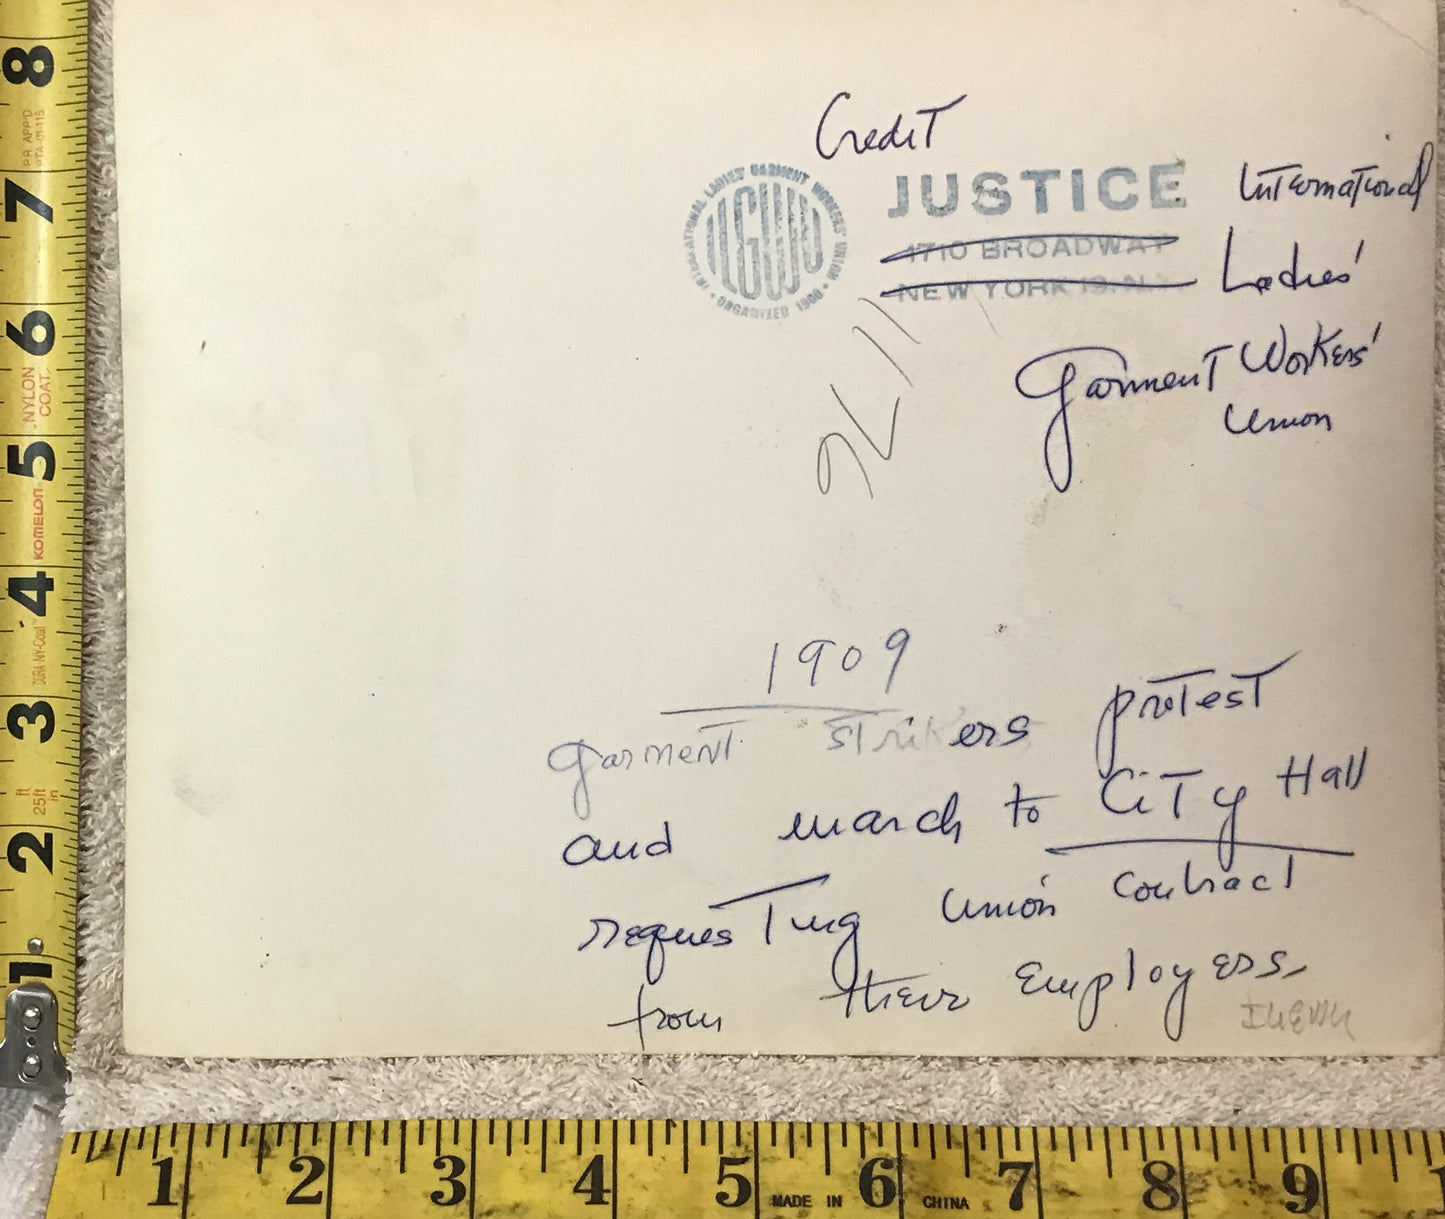 Credit
INTERNATIONAL LADIES' GARMENT WORKERS' UNION
ILGWU
ORGANIZED 1900
JUSTICE
1710 BROADWAY
NEW YORK 19, N.
International
Ladies'
Garment Workers'
Union
1909
Garment Strikers protest
and march to City Hall
requesting Union contract
from their Employers.
8
7
6
5
4
3
2
1
NYLON
COAT
KOMELON
DURA NY-Coat
ft
25ft
in
1 2 3 4 5 MADE IN 6 CHINA 7 8 9 1